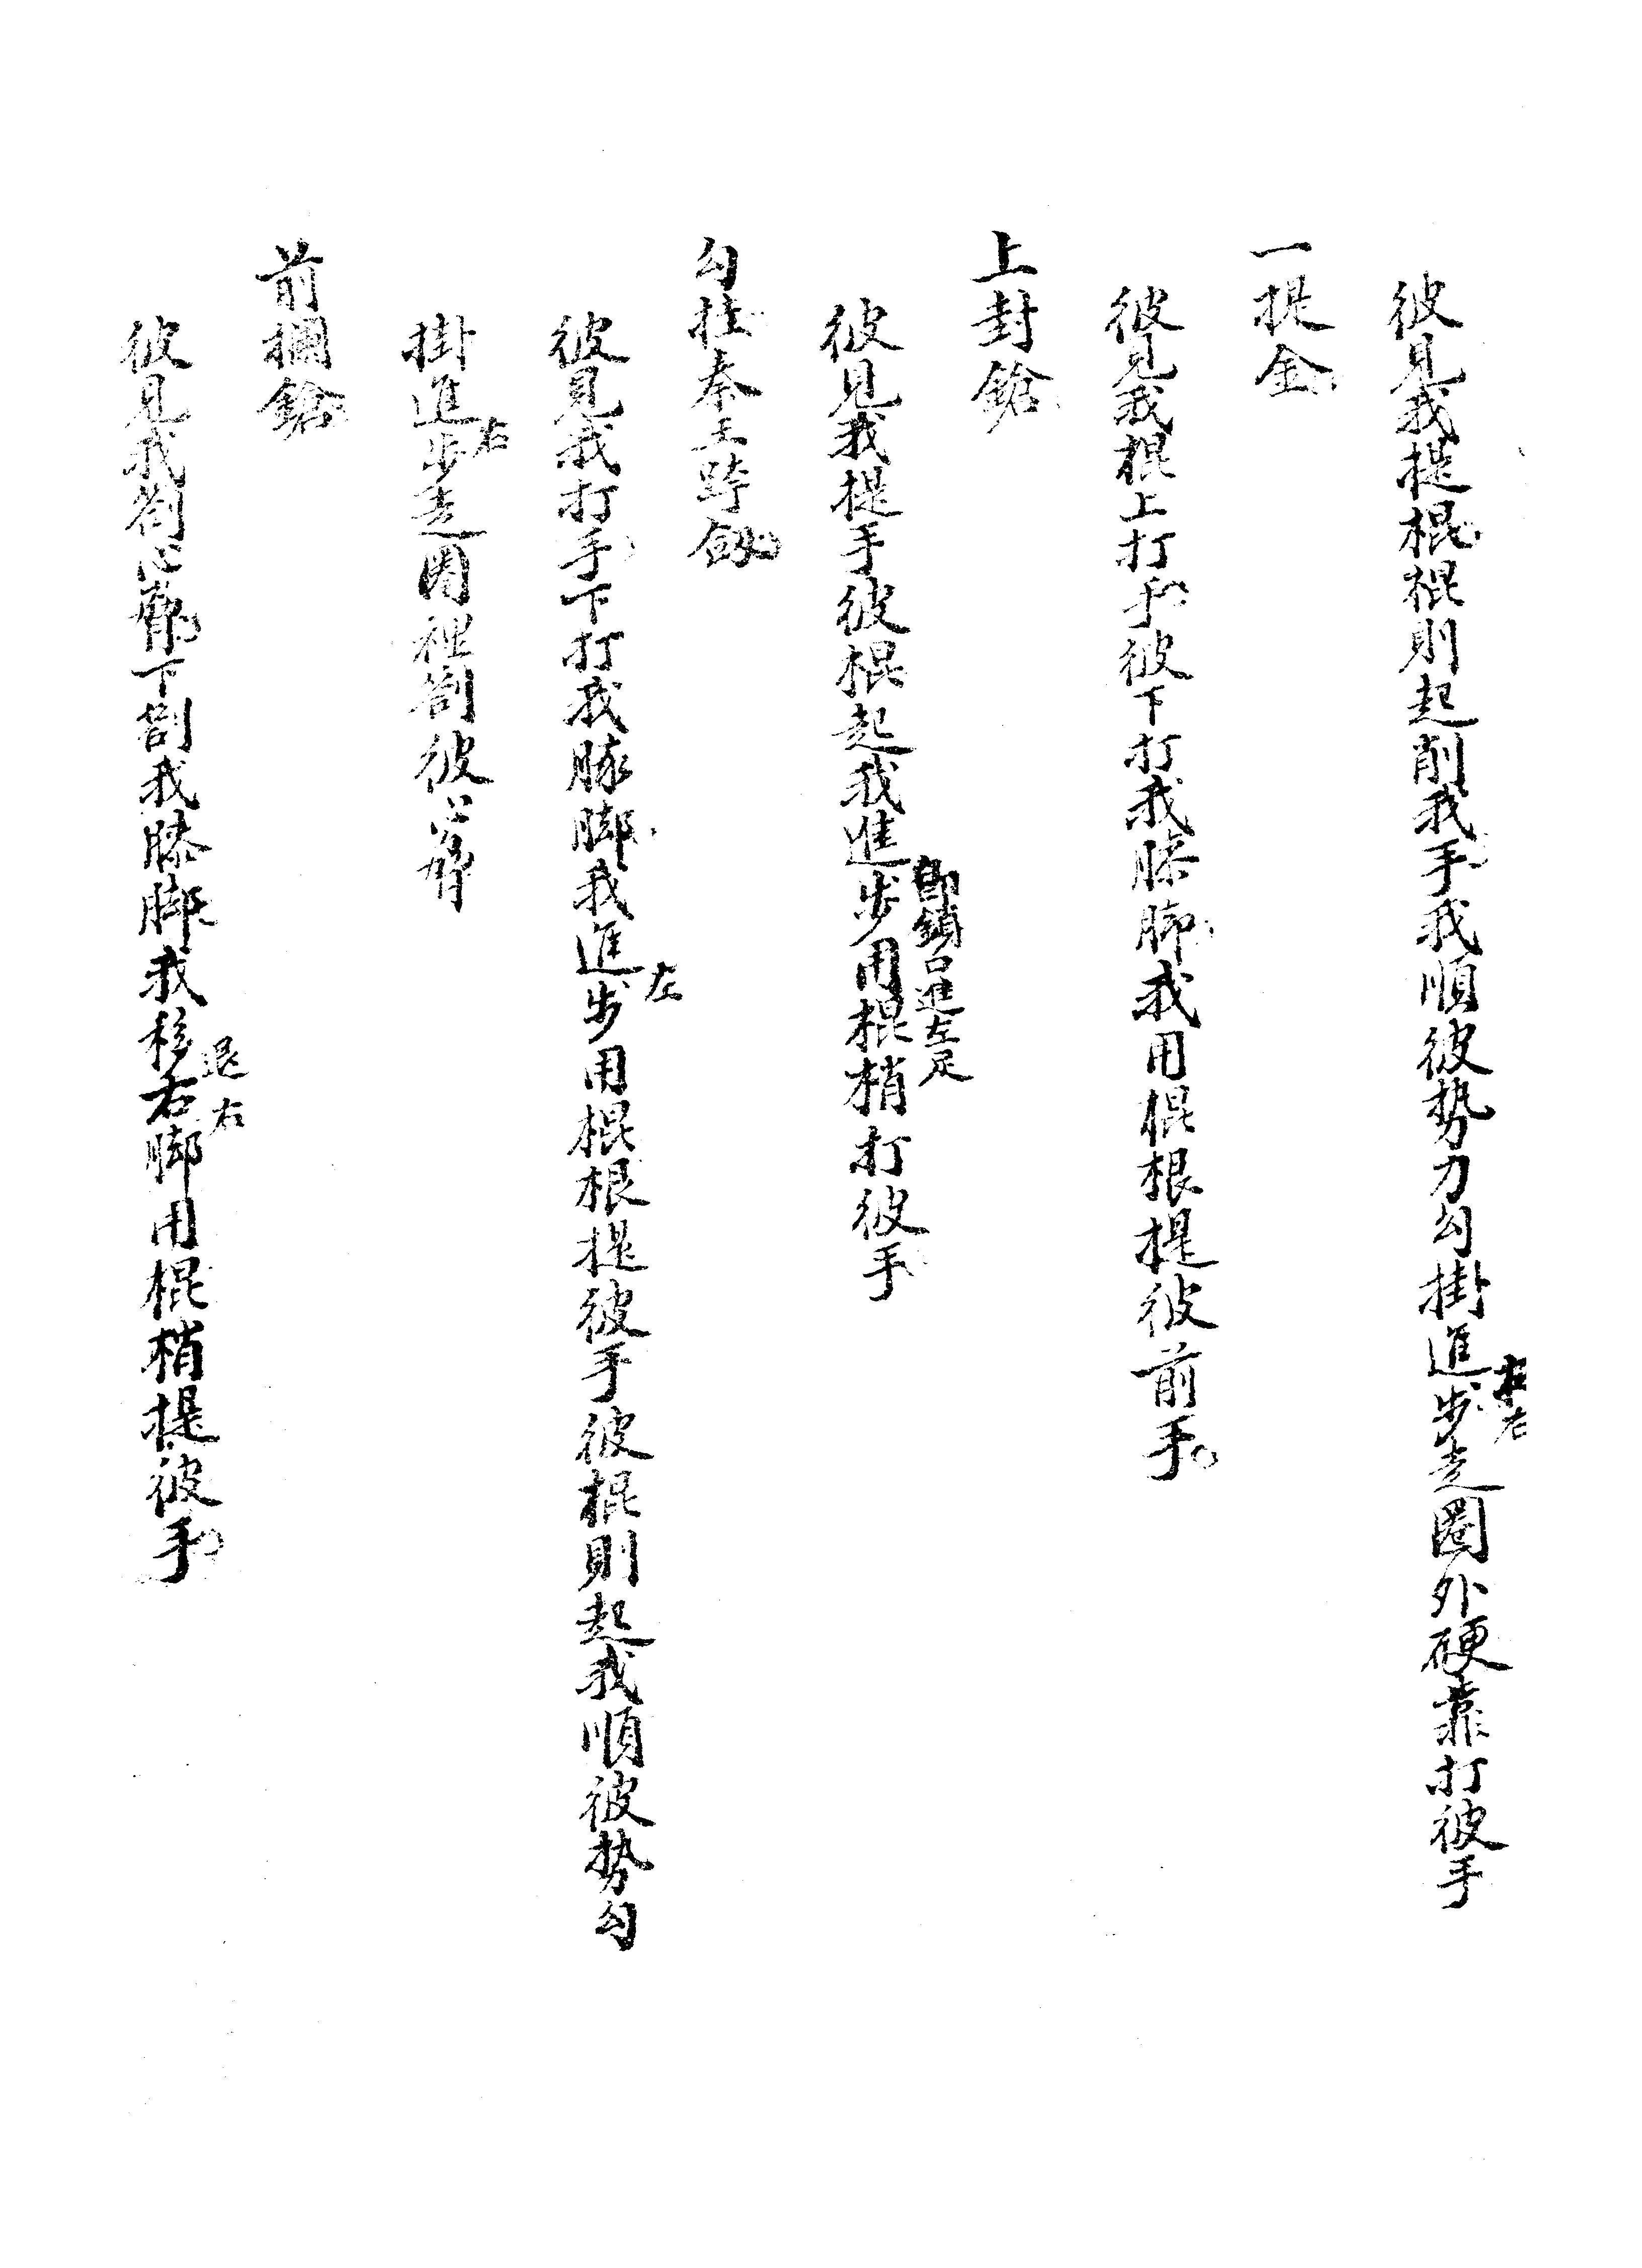 彼見我提棍棍則起削我手我順彼勢力勾掛進步走圈外硬靠打彼手
右
一提金
彼見我棍上打手彼下打我膝脚我用棍根提彼前手
上封鎗
即鎖口進左足
彼見我提手彼棍起我進步用棍梢打彼手
勾挂秦王跨劔
左
彼見我打手下打我膝脚我進步用棍根提彼手彼棍則起我順彼勢勾
右
掛進步走圈裡劄彼心脅
前攔鎗
退右
彼見我劄心脅下劄我膝脚我移右脚用棍梢提彼手